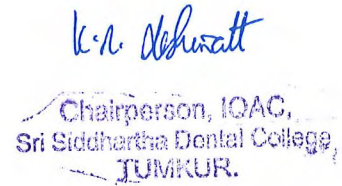 Chairperson, IQAC,
Sri Siddhartha Dental College,
TUMKUR.